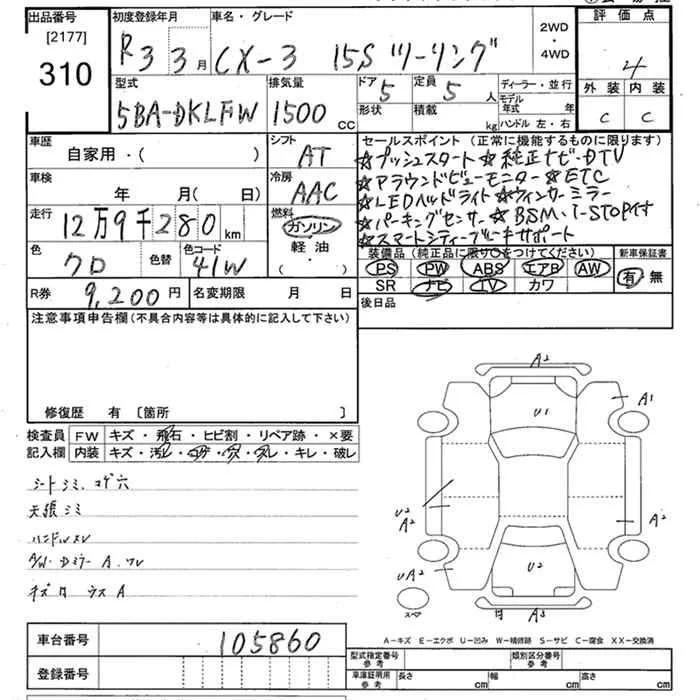 出品番号
[2177]
310
初度登録年月
R3 3月
車名・グレード
CX-3 15S ツーリング
2WD
・
4WD
評価点
4
外装 内装
C C
型式
5BA-DKLFW
排気量
1500 CC
ドア
5
定員
5 人
形状
積載
kg
ディーラー・並行
モデル年式 年
ハンドル 左・右
車歴
自家用・( )
シフト
AT
車検
年 月(日)
冷房
AAC
走行
12万9千280 km
燃料
ガソリン
軽油
( ・ )
色
クロ
色替
色コード
41W
セールスポイント (正常に機能するものに限ります)
☆プッシュスタート☆純正ナビ・DTV
☆アラウンドビューモニター☆ETC
☆LEDヘッドライト☆ウィンカーミラー
☆パーキングセンサー☆BSM・i-STOP付き
☆スマートシティーブレーキサポート
装備品 (純正品に限り○をつけてください)
PS PW ABS エアB AW
SR ナビ TV カワ
新車保証書
有 無
R券
9,200円
名変期限 月 日
後日品
注意事項申告欄(不具合内容等は具体的に記入して下さい)
修復歴 有 〔箇所 〕
検査員
記入欄
FW キズ・飛石・ヒビ割・リペア跡・×要
内装 キズ・汚レ・コゲ・穴・スレ・キレ・破レ
シートシミ、コゲ穴
天張シミ
ハンドルスレ
A/W・Dミラー A、ワレ
キズ ウスA
A2
U1
A1
U2
A2
A2
UA2
U2
A3
スペア
A-キズ E-エクボ U-凹み W-補修跡 S-サビ C-腐食 XX-交換済
車台番号
105860
登録番号
型式指定番号
参考
類別区分番号
参考
車庫証明用
参考
長さ cm
幅 cm
高さ cm